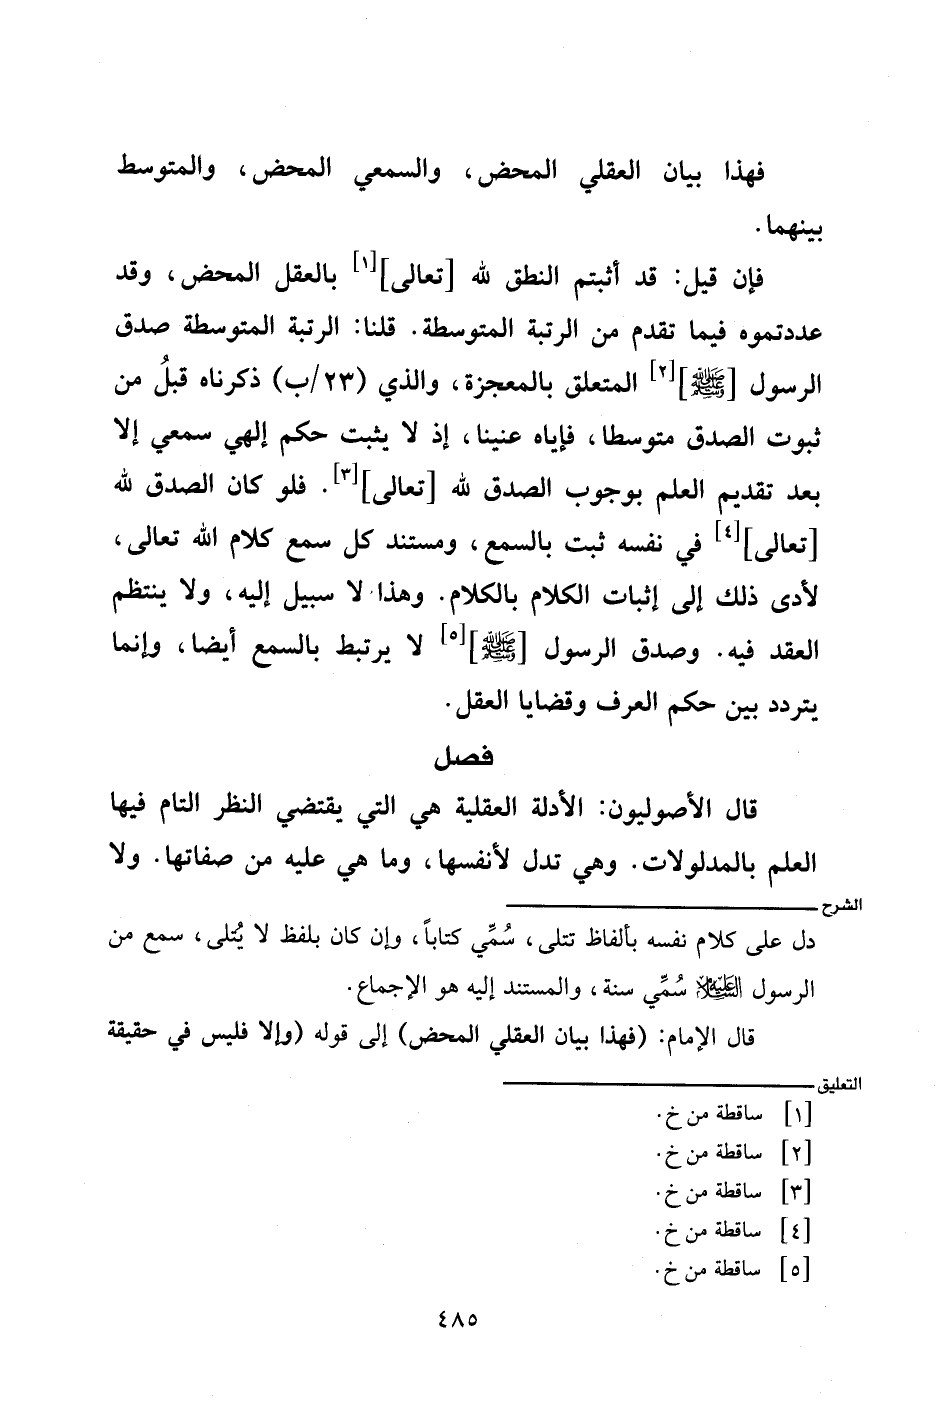 فهذا بيان العقلي المحض، والسمعي المحض، والمتوسط
بينهما.
فإن قيل: قد أثبتم النطق لله [تعالى][١] بالعقل المحض، وقد
عددتموه فيما تقدم من الرتبة المتوسطة. قلنا: الرتبة المتوسطة صدق
الرسول [ﷺ][٢] المتعلق بالمعجزة، والذي (٢٣/ب) ذكرناه قبلُ من
ثبوت الصدق متوسطا، فإياه عنينا، إذ لا يثبت حكم إلهي سمعي إلا
بعد تقديم العلم بوجوب الصدق لله [تعالى][٣]. فلو كان الصدق لله
[تعالى][٤] في نفسه ثبت بالسمع، ومستند كل سمع كلام الله تعالى،
لأدى ذلك إلى إثبات الكلام بالكلام. وهذا لا سبيل إليه، ولا ينتظم
العقد فيه. وصدق الرسول [ﷺ][٥] لا يرتبط بالسمع أيضا، وإنما
يتردد بين حكم العرف وقضايا العقل.
فصل
قال الأصوليون: الأدلة العقلية هي التي يقتضي النظر التام فيها
العلم بالمدلولات. وهي تدل لأنفسها، وما هي عليه من صفاتها. ولا
الشرح
دل على كلام نفسه بألفاظ تتلى، سُمِّي كتاباً، وإن كان بلفظ لا يُتلى، سمع من
الرسول عليه السلام سُمِّي سنة، والمستند إليه هو الإجماع.
قال الإمام: (فهذا بيان العقلي المحض) إلى قوله (وإلا فليس في حقيقة
التعليق
[١] ساقطة من خ.
[٢] ساقطة من خ.
[٣] ساقطة من خ.
[٤] ساقطة من خ.
[٥] ساقطة من خ.
٤٨٥